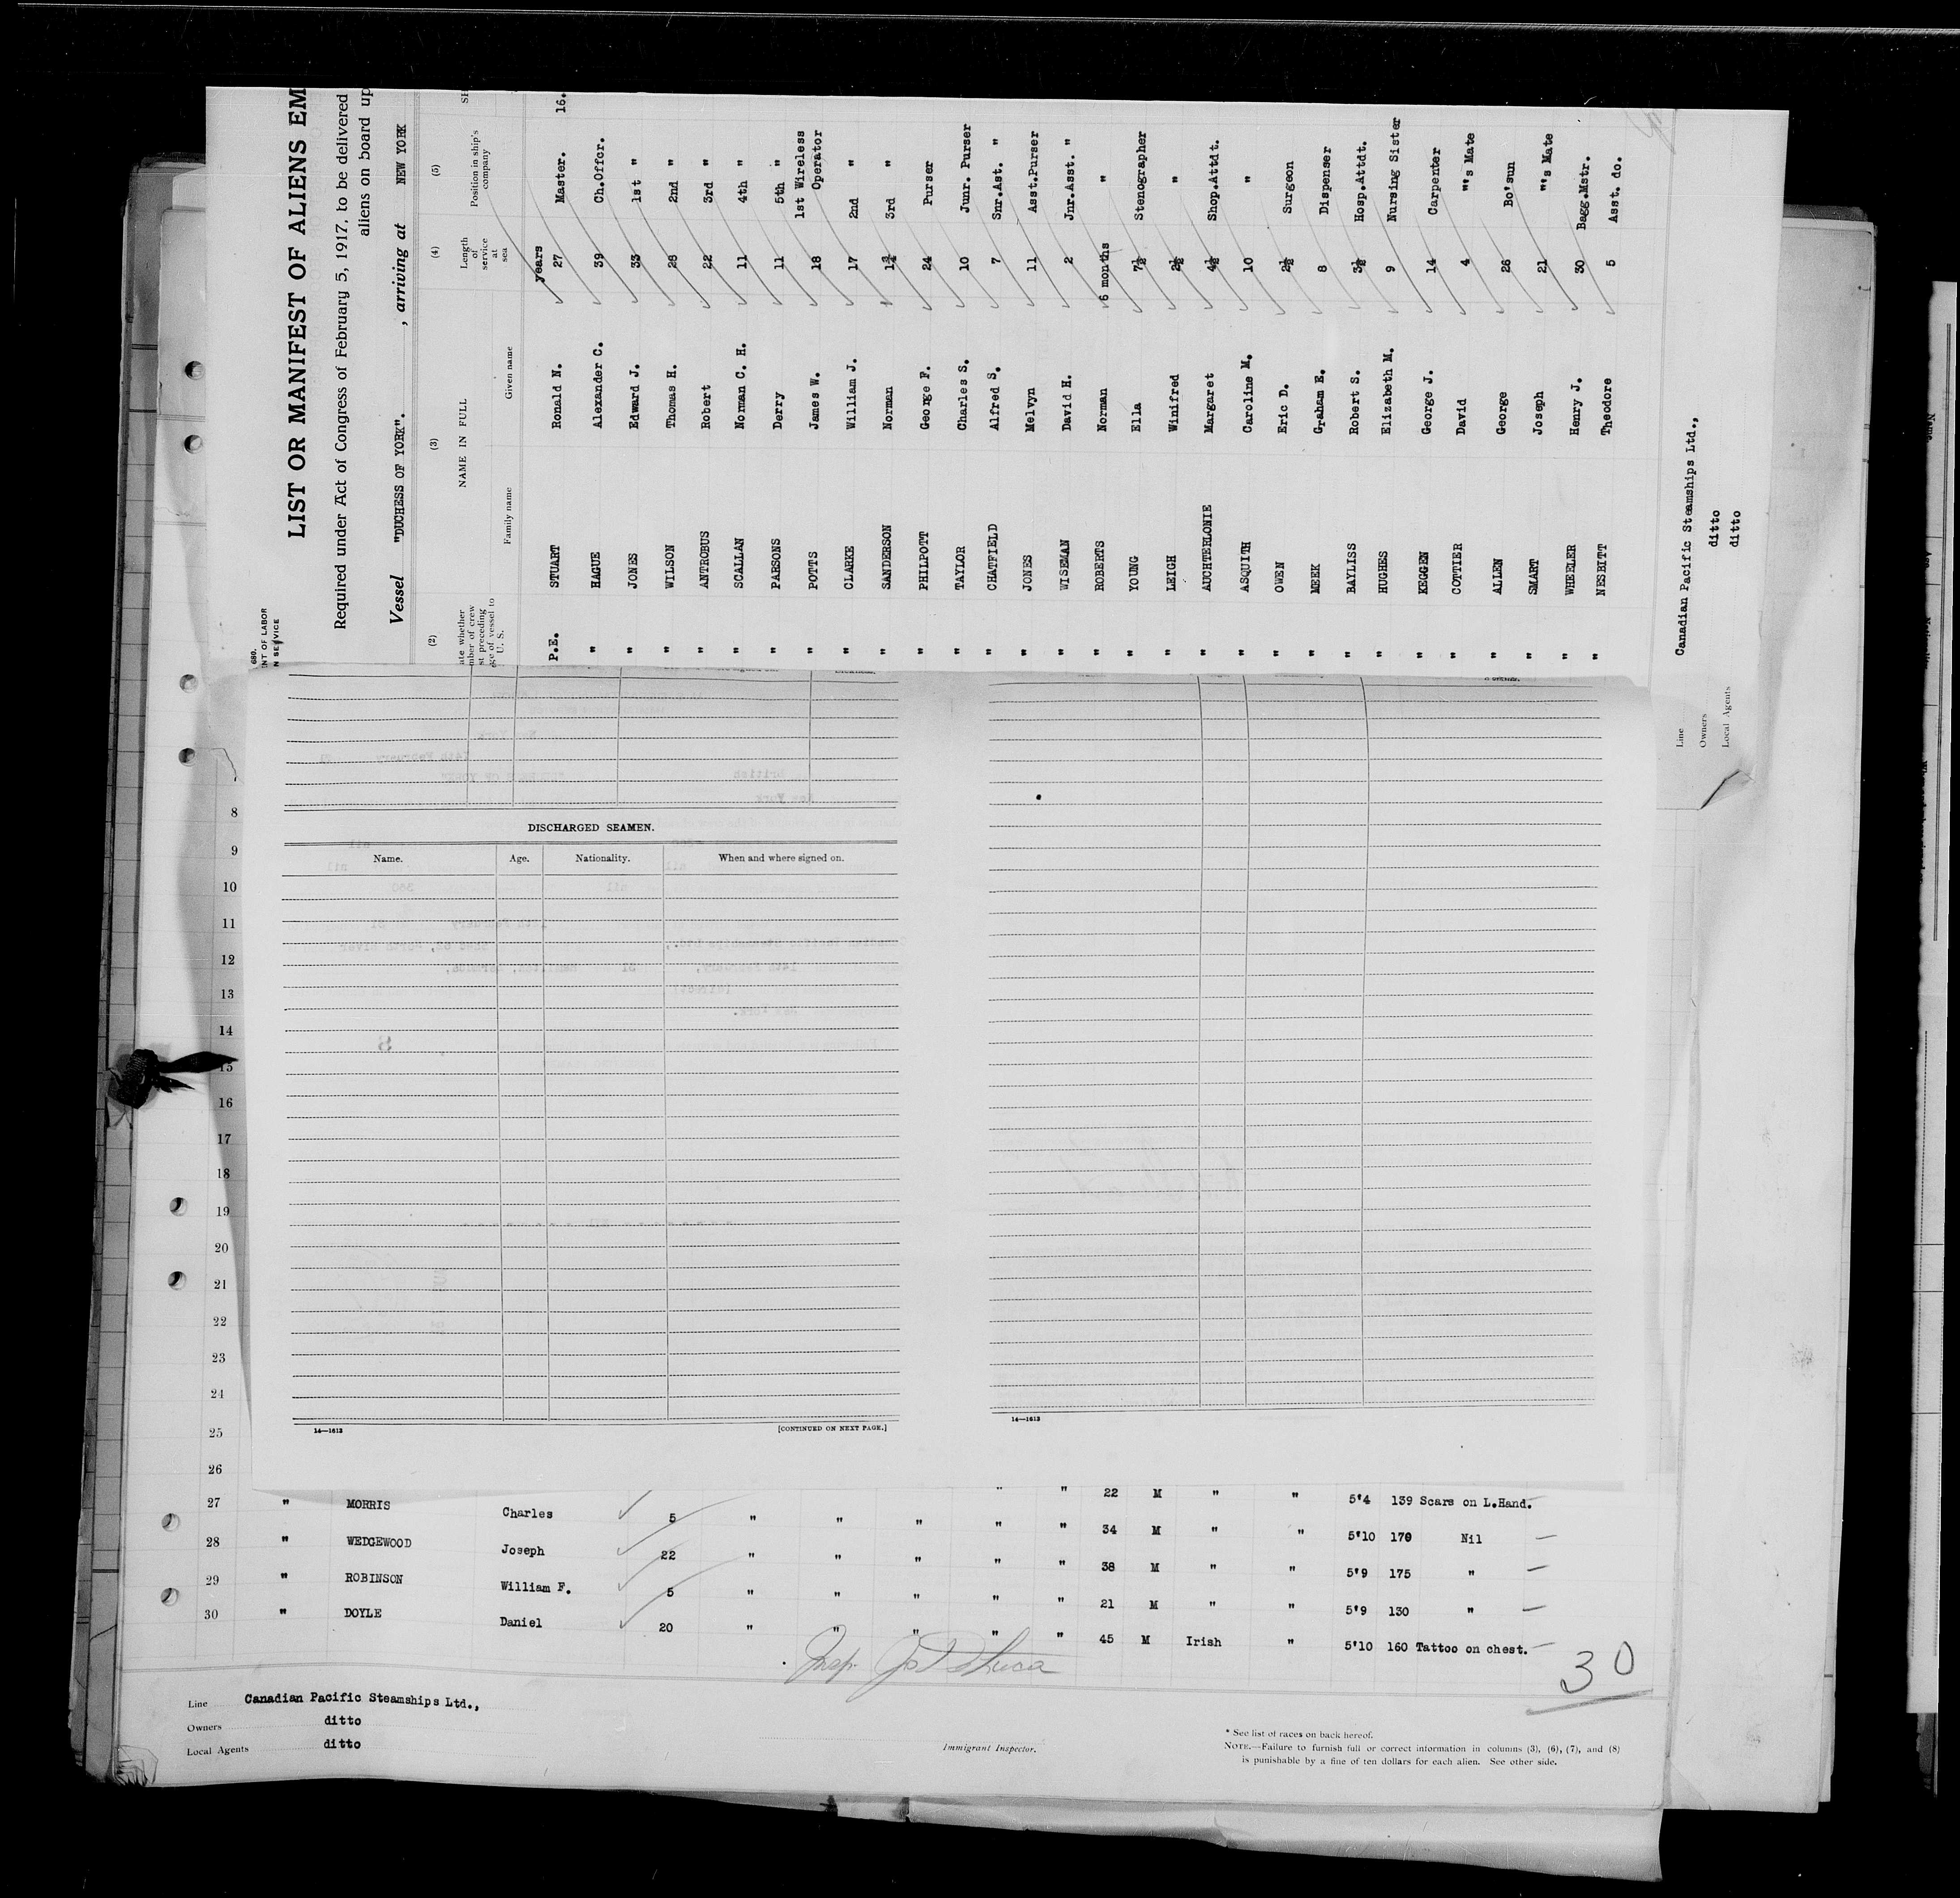 680.
NT OF LABOR
N SERVICE
LIST OR MANIFEST OF ALIENS EM
Required under Act of Congress of February 5, 1917, to be delivered
aliens on board up
Vessel "DUCHESS OF YORK". , arriving at NEW YORK
(2) (3) (4) (5)
ate whether
mber of crew
st preceding
ge of vessel to
U. S.
NAME IN FULL
Family name Given name
Length
of
service
at
sea
Position in ship's
company
years
P.E. STUART Ronald N. 27 Master. 16.
" HAGUE Alexander C. 39 Ch.Offcr.
" JONES Edward J. 33 1st "
" WILSON Thomas H. 28 2nd "
" ANTROBUS Robert 22 3rd "
" SCALLAN Norman C. H. 11 4th "
" PARSONS Derry 11 5th "
" POTTS James W. 18 1st Wireless Operator
" CLARKE William J. 17 2nd "
" SANDERSON Norman 1¾ 3rd "
" PHILPOTT George F. 24 Purser
" TAYLOR Charles S. 10 Junr. Purser
" CHATFIELD Alfred S. 7 Snr.Ast. "
" JONES Melvyn 11 Asst.Purser
" WISEMAN David H. 2 Jnr.Asst. "
" ROBERTS Norman 6 months "
" YOUNG Ella 7½ Stenographer
" LEIGH Winifred 2½ "
" AUCHTERLONIE Margaret 4½ Shop.Attdt.
" ASQUITH Caroline M. 10 "
" OWEN Eric D. 2½ Surgeon
" MEEK Graham E. 8 Dispenser
" BAYLISS Robert S. 3½ Hosp.Attdt.
" HUGHES Elizabeth M. 9 Nursing Sister
" KEGGEN George J. 14 Carpenter
" COTTIER David 4 "'s Mate
" ALLEN George 26 Bo'sun
" SMART Joseph 21 "'s Mate
" WHEELER Henry J. 30 Bagg.Mstr.
" NESBITT Theodore 5 Asst. do.
Line Canadian Pacific Steamships Ltd.,
Owners ditto
Local Agents ditto
DISCHARGED SEAMEN.
Name. Age. Nationality. When and where signed on.
14—1613 [CONTINUED ON NEXT PAGE.]
14—1613
8
9
10
11
12
13
14
15
16
17
18
19
20
21
22
23
24
25
26
27 " MORRIS Charles 5 " " " " " 22 M " " 5'4 139 Scars on L.Hand.
28 " WEDGEWOOD Joseph 22 " " " " " 34 M " " 5'10 170 Nil
29 " ROBINSON William F. 5 " " " " " 38 M " " 5'9 175 "
30 " DOYLE Daniel 20 " " " " " 21 M " " 5'9 130 "
45 M Irish " 5'10 160 Tattoo on chest.
30
Line Canadian Pacific Steamships Ltd.,
Owners ditto
Local Agents ditto
Immigrant Inspector.
* See list of races on back hereof.
NOTE.—Failure to furnish full or correct information in columns (3), (6), (7), and (8)
is punishable by a fine of ten dollars for each alien. See other side.